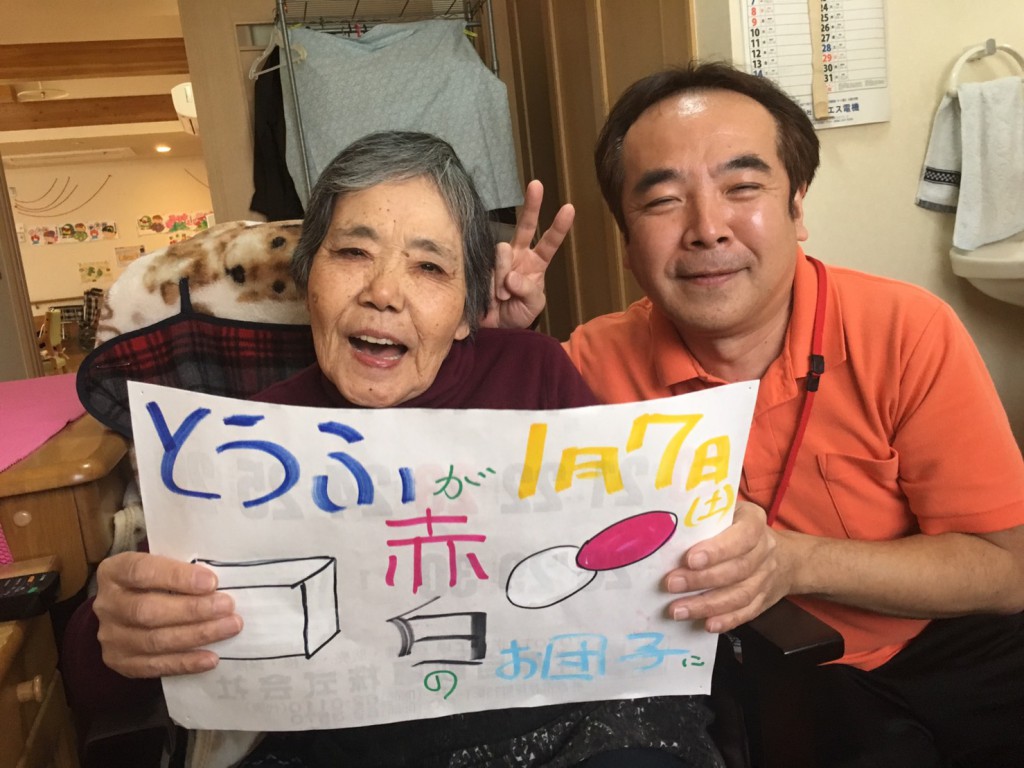 とうふが 1月7日
(土)
赤
白
の お団子に
8
9
10
11
12
13
24
25
26
27
28
29
30
31
エス電機